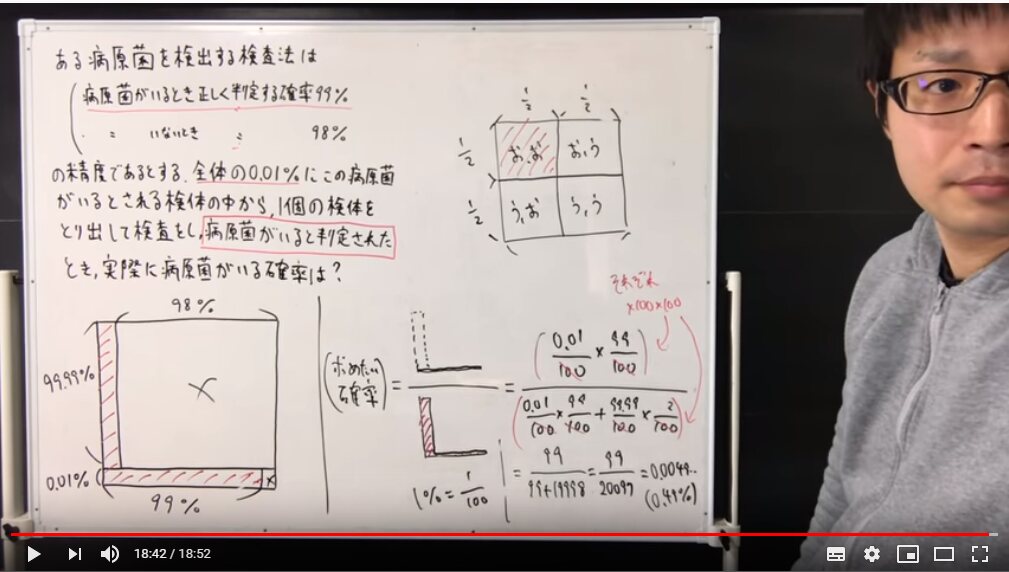 ある病原菌を検出する検査法は
病原菌がいるとき正しく判定する確率99%
〃 いないとき 〃 98%
の精度であるとする。全体の0.01%にこの病原菌
がいるとされる検体の中から、1個の検体を
とり出して検査をし、病原菌がいると判定された
とき、実際に病原菌がいる確率は?
1/2 1/2
1/2 お,お お,う
1/2 う,お う,う
98%
99.99% ×
0.01% ×
99%
(求めたい確率) =
1% = 1/100
それぞれ
×100×100
= (0.01/100 × 99/100) / (0.01/100 × 99/100 + 99.99/100 × 2/100)
= 99/(99+19998) = 99/20097 = 0.0049..
(0.49%)
18:42 / 18:52